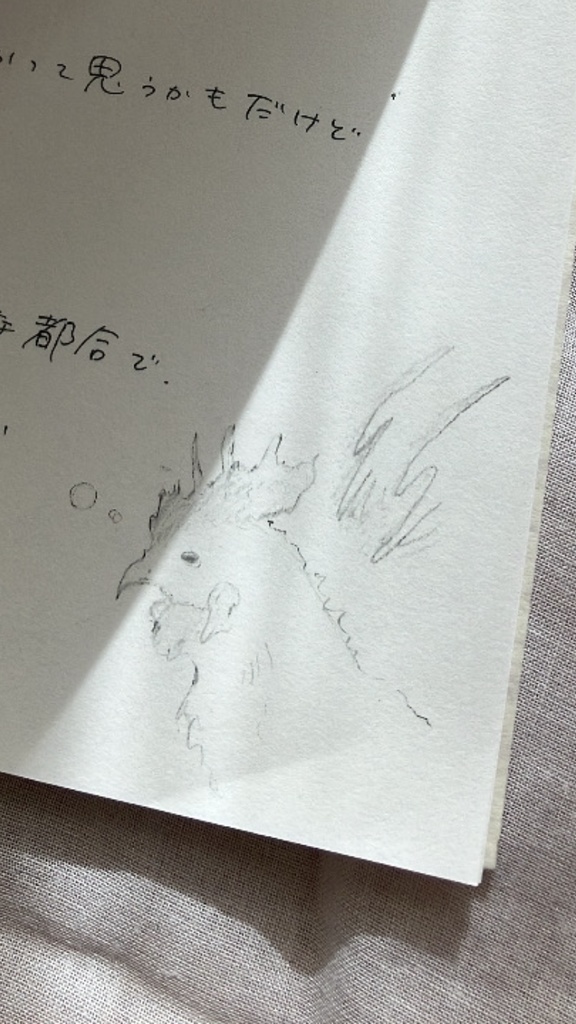 って思うかもだけど
都合で.